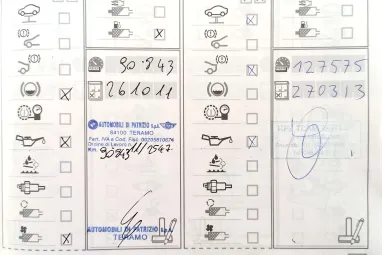 90.843
261011
AUTOMOBILI DI PATRIZIO S.p.A.
64100 TERAMO
Part. IVA e Cod. Fisc. 00205510676
Ordine di Lavoro n.
Km. 90843 11/2547
AUTOMOBILI DI PATRIZIO S.p.A.
TERAMO
127575
270313